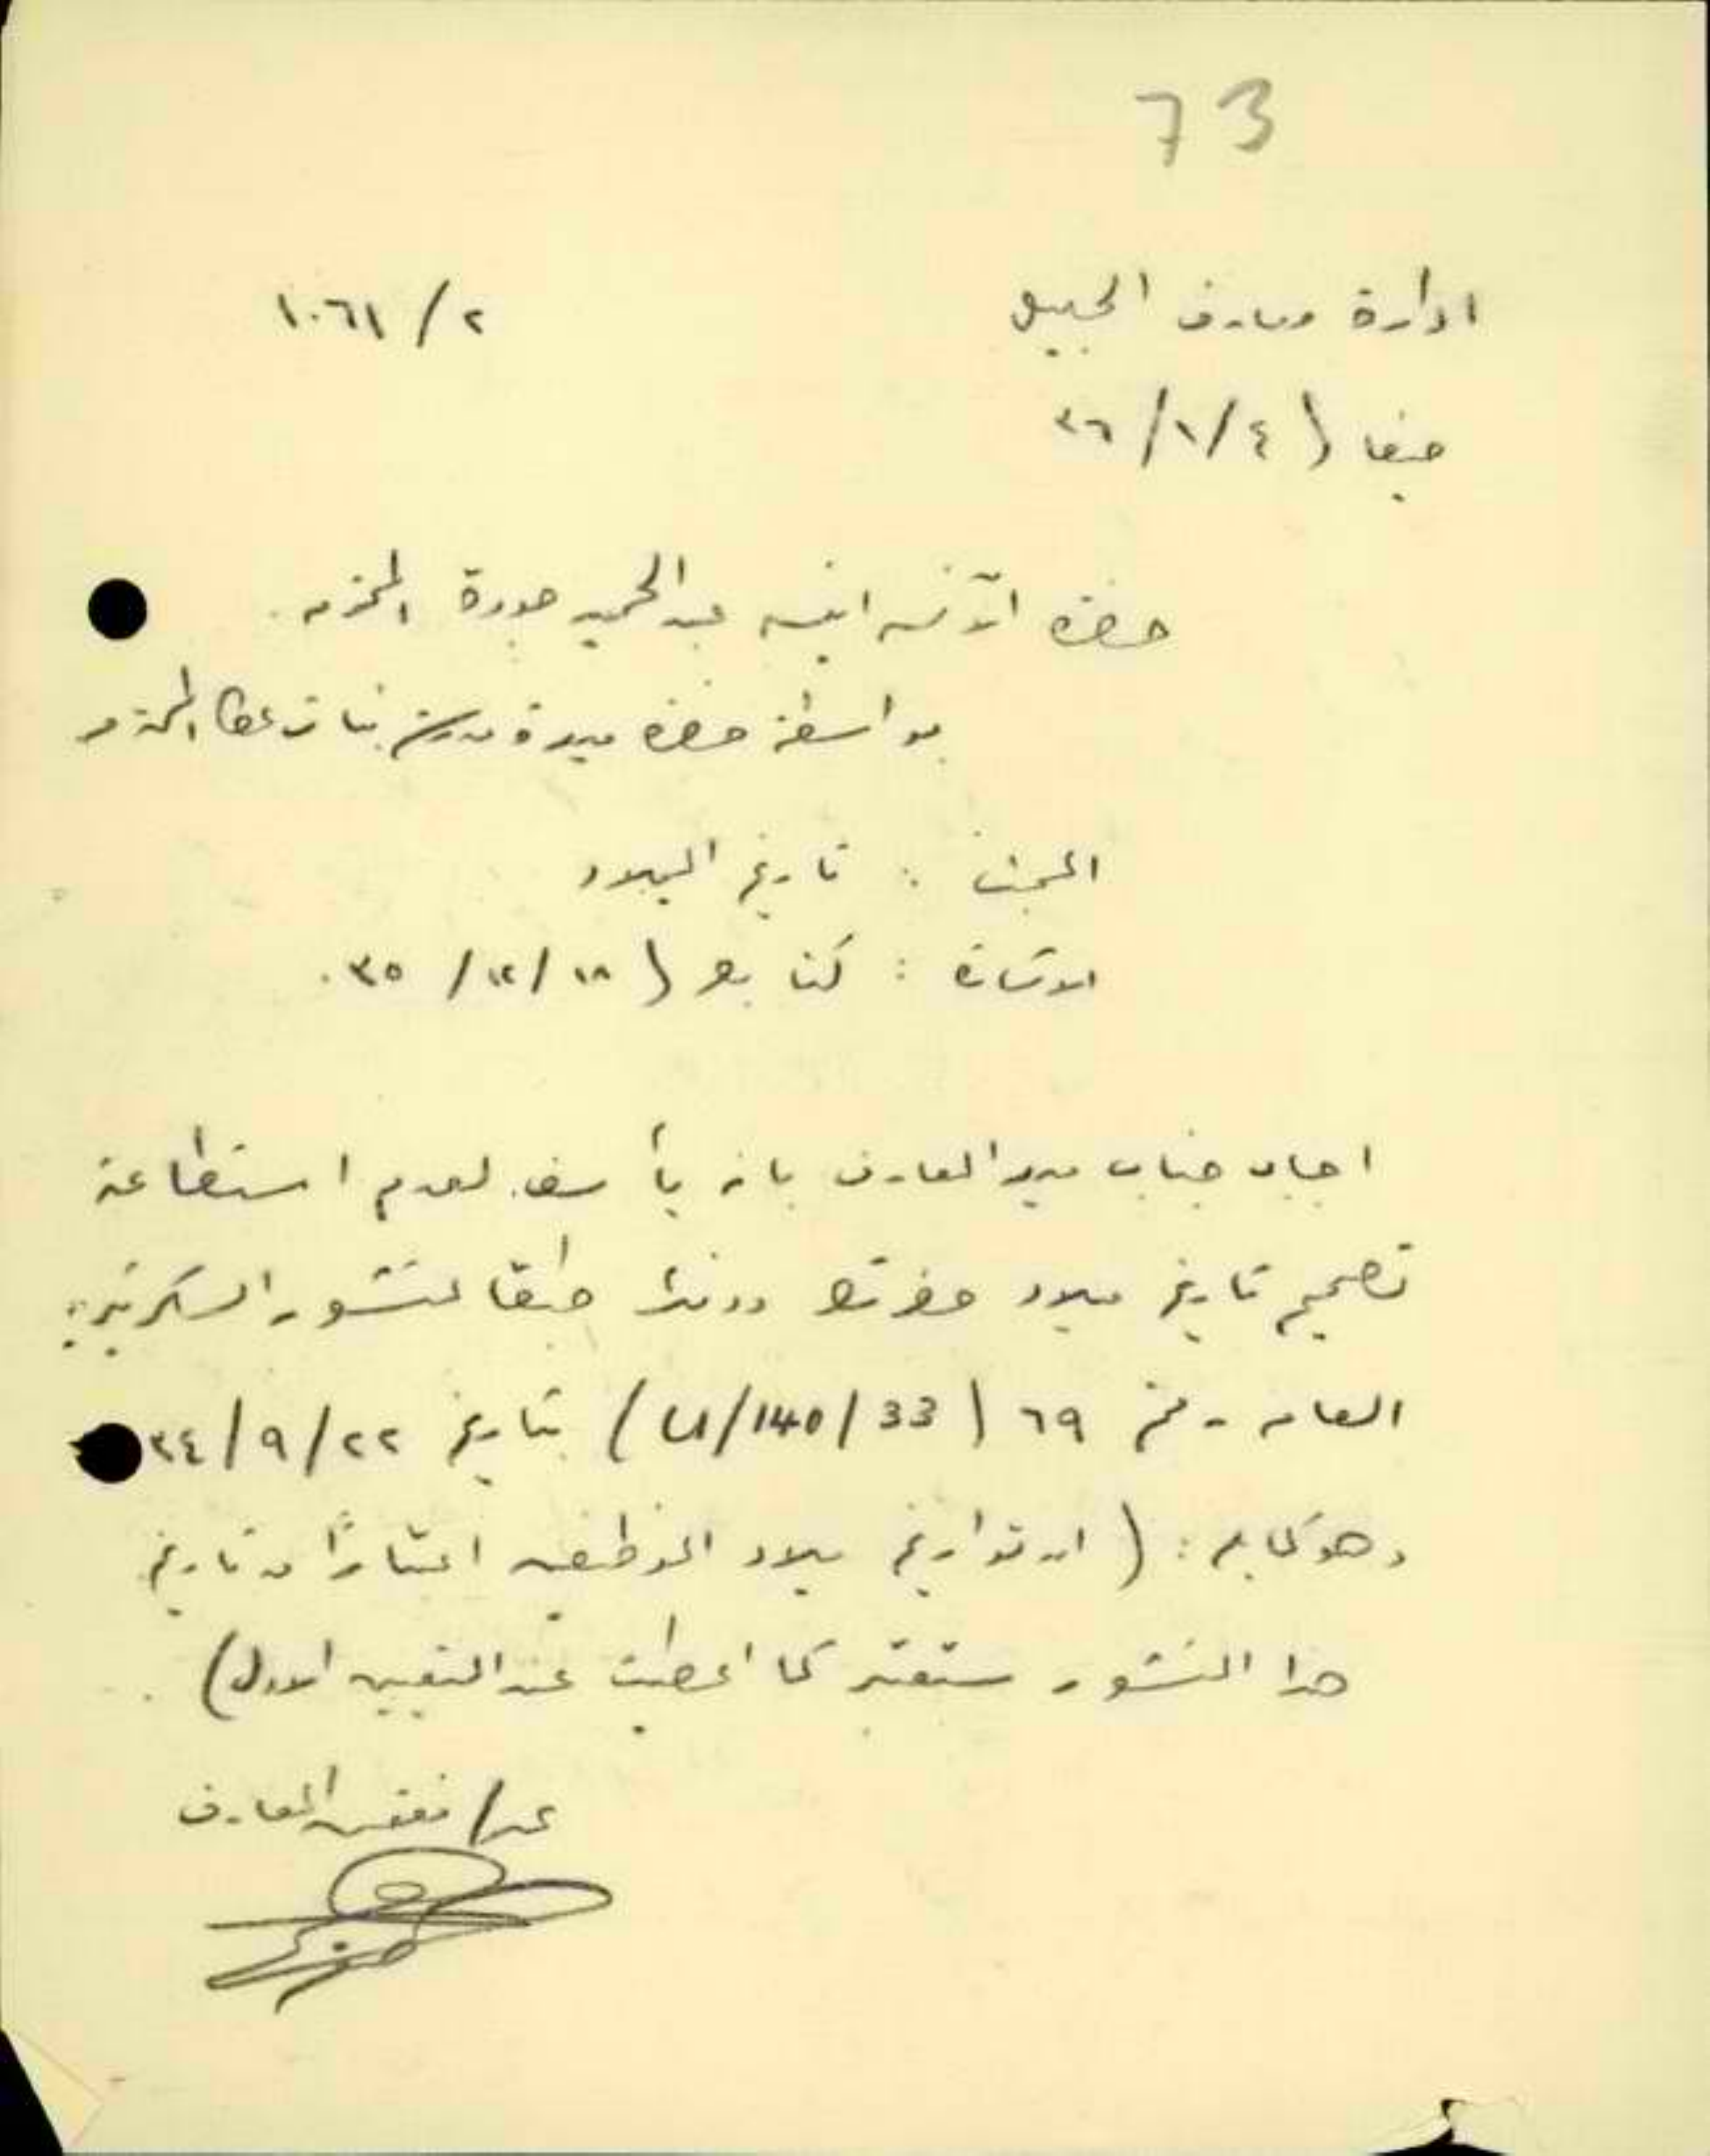 73
ادارة معارف الجليل
٢/١٠٦١
حيفا ( ٤/١/٣٦
حضرة الآنسه انيسه عبد الحميد جودة المحترمه
بواسطة حضرة مديرة مدرسة بنات عكا المحترمه
المبحث : تاريخ الميلاد
الاشارة : كتابكم ( ١٨/١٢/٣٥.
اجاب جناب مدير المعارف بانه يأسف لعدم استطاعة
تصحيح تاريخ ميلاد حضرتكم وذلك طبقا لمنشور السكرتيرية
العامه رقم ٦٩ ( U/140/33 ) بتاريخ ٢٢/٩/٣٤
وهو كما يلي : ( ان تواريخ ميلاد الموظفين اعتبارًا من تاريخ
هذا المنشور ستعتبر كما اعطيت عند التعيين الاول ) .
عن/ مفتش المعارف